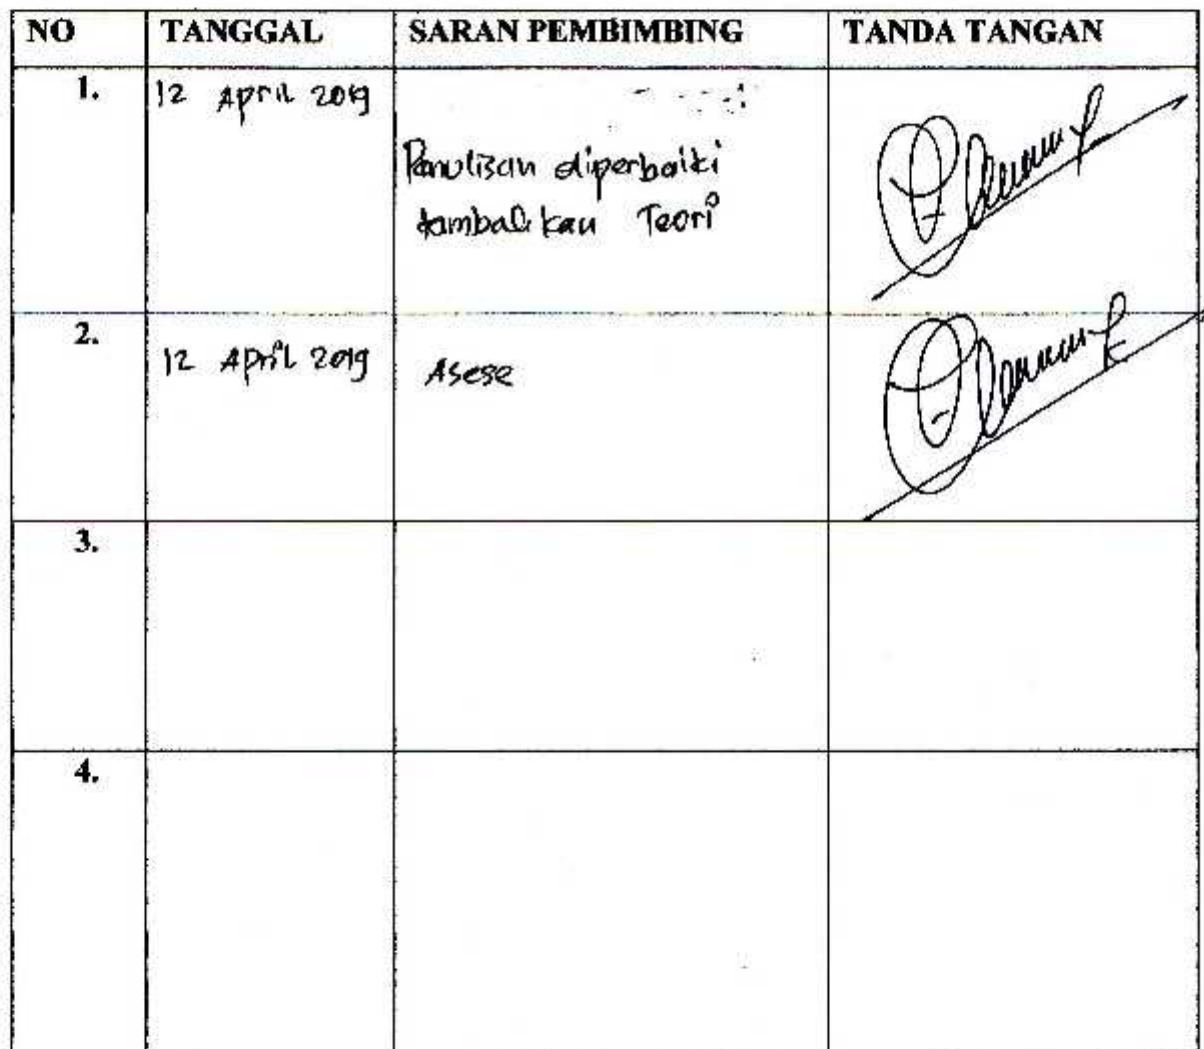 NO TANGGAL SARAN PEMBIMBING TANDA TANGAN
1. 12 April 2019
Penulisan diperbaiki
tambahkan Teori
2.
12 April 2019 Asese
3.
4.